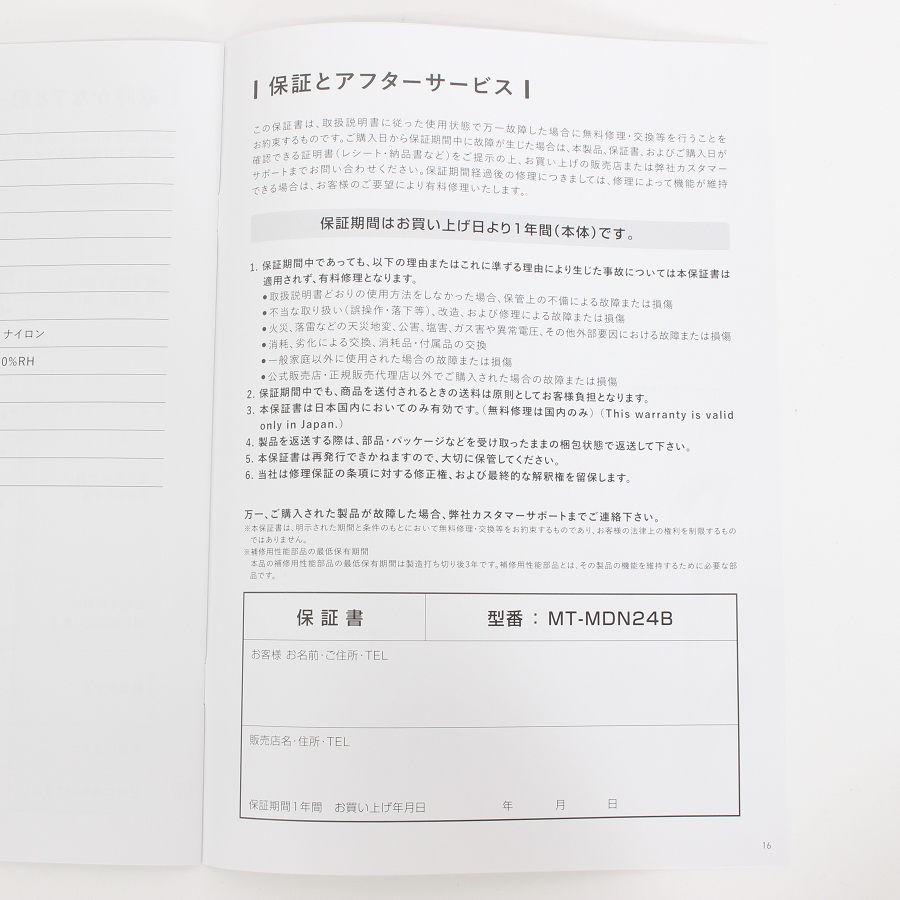 ナイロン
0%RH
保証とアフターサービス
この保証書は、取扱説明書に従った使用状態で万一故障した場合に無料修理・交換等を行うことを
お約束するものです。ご購入日から保証期間中に故障が生じた場合は、本製品、保証書、およびご購入日が
確認できる証明書(レシート・納品書など)をご提示の上、お買い上げの販売店または弊社カスタマー
サポートまでお問い合わせください。保証期間経過後の修理につきましては、修理によって機能が維持
できる場合は、お客様のご要望により有料修理いたします。
保証期間はお買い上げ日より1年間(本体)です。
1. 保証期間中であっても、以下の理由またはこれに準ずる理由により生じた事故については本保証書は
適用されず、有料修理となります。
●取扱説明書どおりの使用方法をしなかった場合、保管上の不備による故障または損傷
●不当な取り扱い(誤操作・落下等)、改造、および修理による故障または損傷
●火災、落雷などの天災地変、公害、塩害、ガス害や異常電圧、その他外部要因における故障または損傷
●消耗、劣化による交換、消耗品・付属品の交換
●一般家庭以外に使用された場合の故障または損傷
●公式販売店・正規販売代理店以外でご購入された場合の故障または損傷
2. 保証期間中でも、商品を送付されるときの送料は原則としてお客様負担となります。
3. 本保証書は日本国内においてのみ有効です。(無料修理は国内のみ) (This warranty is valid
only in Japan.)
4. 製品を返送する際は、部品・パッケージなどを受け取ったままの梱包状態で返送して下さい。
5. 本保証書は再発行できかねますので、大切に保管してください。
6. 当社は修理保証の条項に対する修正権、および最終的な解釈権を留保します。
万一、ご購入された製品が故障した場合、弊社カスタマーサポートまでご連絡下さい。
※本保証書は、明示された期間と条件のもとにおいて無料修理・交換等をお約束するものであり、お客様の法律上の権利を制限するもの
ではありません。
※補修用性能部品の最低保有期間
本品の補修用性能部品の最低保有期間は製造打ち切り後3年です。補修用性能部品とは、その製品の機能を維持するために必要な部
品です。
保証書 型番 : MT-MDN24B
お客様 お名前・ご住所・TEL
販売店名・住所・TEL
保証期間1年間 お買い上げ年月日 年 月 日
16